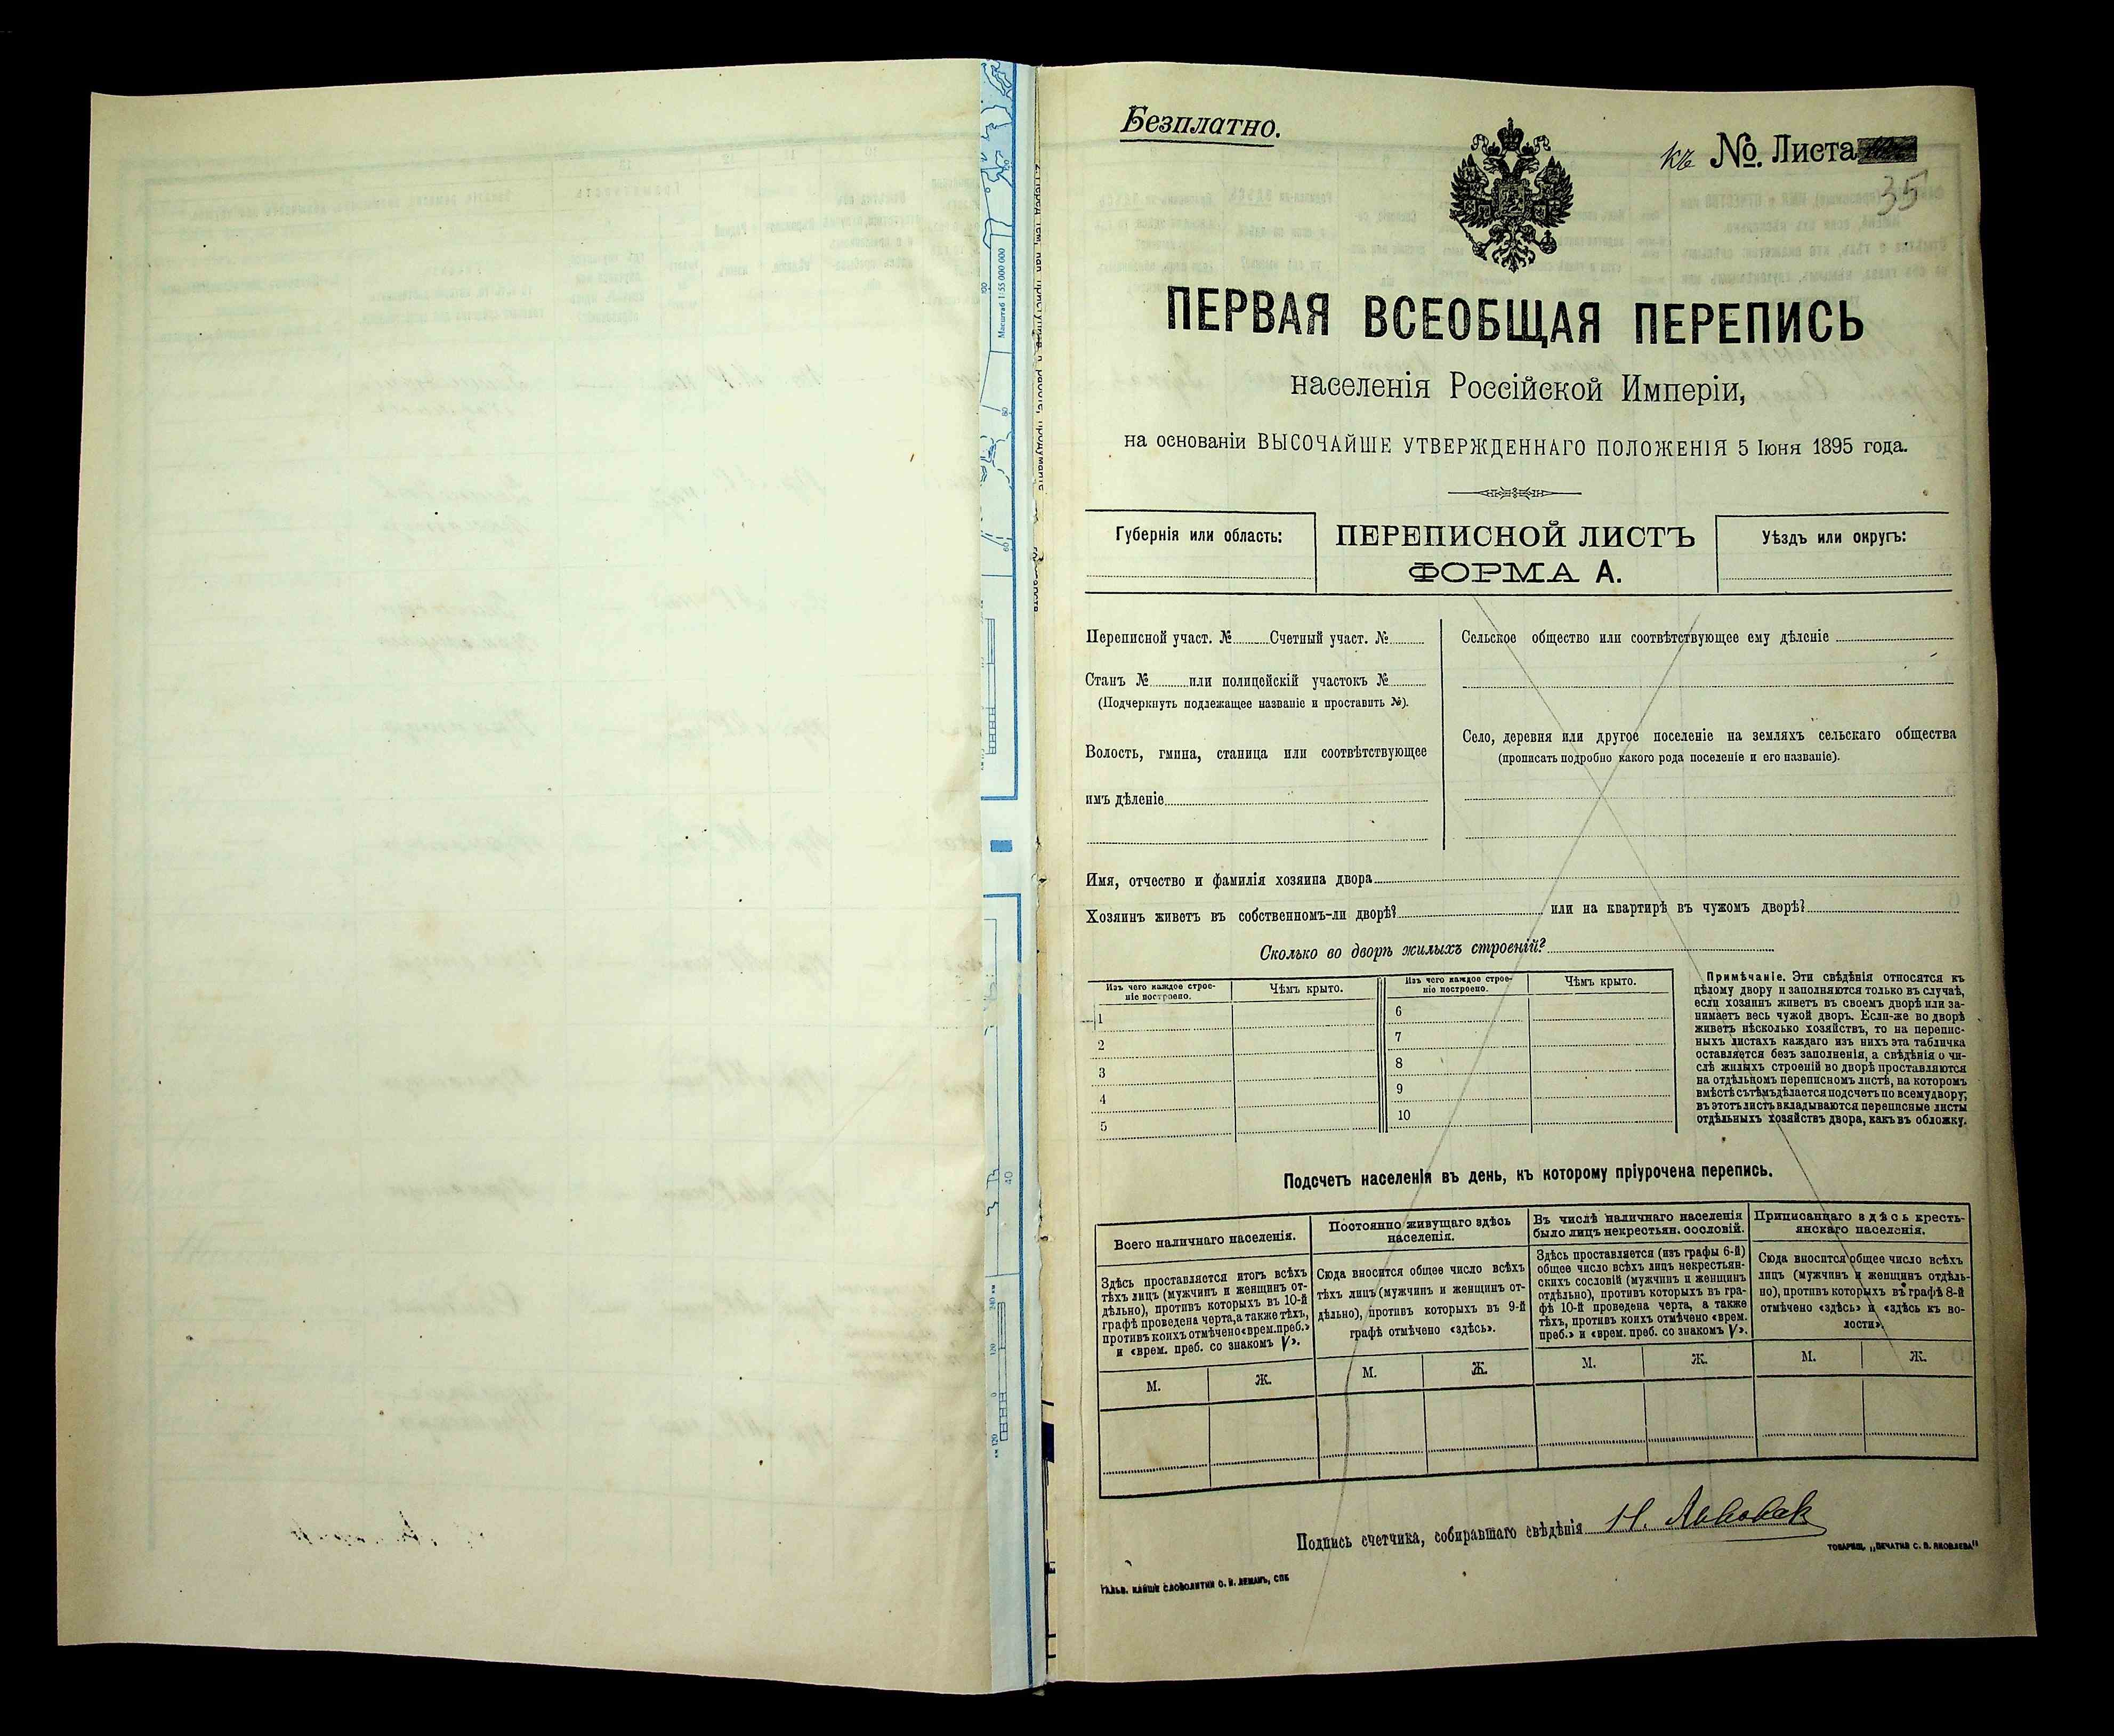 Безплатно.
къ №. Листа
35
ПЕРВАЯ ВСЕОБЩАЯ ПЕРЕПИСЬ
населенія Россійской Имперіи,
на основаніи ВЫСОЧАЙШЕ УТВЕРЖДЕННАГО ПОЛОЖЕНІЯ 5 Іюня 1895 года.
Губернія или область:
ПЕРЕПИСНОЙ ЛИСТЪ
ФОРМА А.
Уѣздъ или округъ:
Переписной участ. № Счетный участ. №
Станъ № или полицейскій участокъ №
(Подчеркнуть подлежащее названіе и проставить №).
Волость, гмина, станица или соотвѣтствующее
имъ дѣленіе
Сельское общество или соотвѣтствующее ему дѣленіе
Село, деревня или другое поселеніе на земляхъ сельскаго общества
(прописать подробно какого рода поселеніе и его названіе).
Имя, отчество и фамилія хозяина двора
Хозяинъ живетъ въ собственномъ-ли дворѣ? или на квартирѣ въ чужомъ дворѣ?
Сколько во дворѣ жилыхъ строеній?
Изъ чего каждое строе-
ніе построено.
Чѣмъ крыто.
Изъ чего каждое строе-
ніе построено.
Чѣмъ крыто.
1
2
3
4
5
6
7
8
9
10
Примѣчаніе. Эти свѣдѣнія относятся къ
цѣлому двору и заполняются только въ случаѣ,
если хозяинъ живетъ въ своемъ дворѣ или за-
нимаетъ весь чужой дворъ. Если-же во дворѣ
живетъ нѣсколько хозяйствъ, то на перепис-
ныхъ листахъ каждаго изъ нихъ эта табличка
оставляется безъ заполненія, а свѣдѣнія о чи-
слѣ жилыхъ строеній во дворѣ проставляются
на отдѣльномъ переписномъ листѣ, на которомъ
вмѣстѣ съ тѣмъ дѣлается подсчетъ по всему двору;
въ этотъ листъ вкладываются переписные листы
отдѣльныхъ хозяйствъ двора, какъ въ обложку.
Подсчетъ населенія въ день, къ которому пріурочена перепись.
Всего наличнаго населенія.
Здѣсь проставляется итогъ всѣхъ
тѣхъ лицъ (мужчинъ и женщинъ от-
дѣльно), противъ которыхъ въ 10-й
графѣ проведена черта, а также тѣхъ,
противъ коихъ отмѣчено «врем. преб.»
и «врем. преб. со знакомъ V».
М. Ж.
Постоянно живущаго здѣсь
населенія.
Сюда вносится общее число всѣхъ
тѣхъ лицъ (мужчинъ и женщинъ от-
дѣльно), противъ которыхъ въ 9-й
графѣ отмѣчено «здѣсь».
М. Ж.
Въ числѣ наличнаго населенія
было лицъ некрестьян. сословій.
Здѣсь проставляется (изъ графы 6-й)
общее число всѣхъ лицъ некрестьян-
скихъ сословій (мужчинъ и женщинъ
отдѣльно), противъ которыхъ въ гра-
фѣ 10-й проведена черта, а также
тѣхъ, противъ коихъ отмѣчено «врем.
преб.» и «врем. преб. со знакомъ V».
М. Ж.
Приписаннаго здѣсь кресть-
янскаго населенія.
Сюда вносится общее число всѣхъ
лицъ (мужчинъ и женщинъ отдѣль-
но), противъ которыхъ въ графѣ 8-й
отмѣчено «здѣсь» и «здѣсь къ во-
лости».
М. Ж.
Подпись счетчика, собиравшаго свѣдѣнія
ТОВАРИЩ. „ПЕЧАТНЯ С. П. ЯКОВЛЕВА"
Масштаб 1:55 000 000